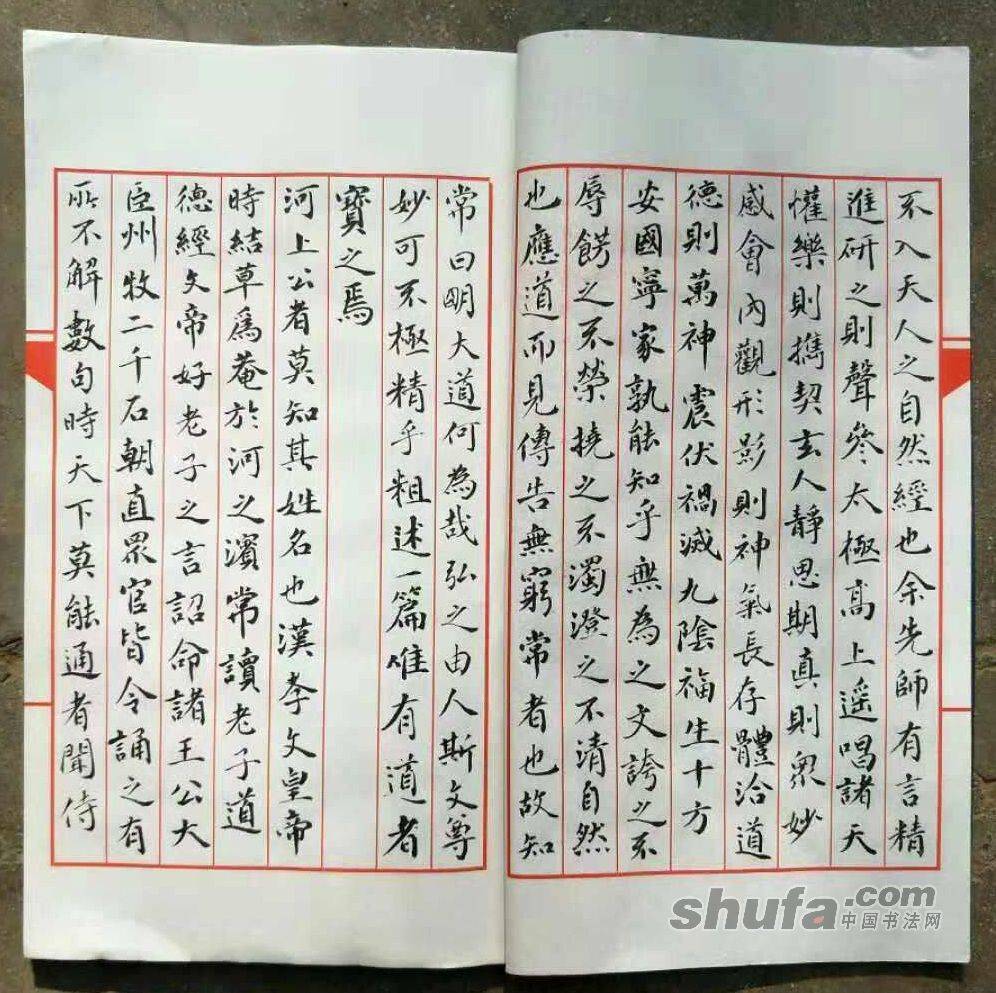 不入天人之自然經也余先師有言精
進研之則聲參太極高上遥唱諸天
懽樂則攜契玄人靜思期真則衆妙
感會內觀形影則神氣長存體洽道
德則萬神震伏禍滅九陰福生十方
安國寧家孰能知乎無為之文誇之不
辱餝之不榮撓之不濁澄之不清自然
也應道而見傳告無窮常者也故知
常曰明大道何為哉弘之由人斯文尊
妙可不極精乎粗述一篇唯有道者
寶之焉
河上公者莫知其姓名也漢孝文皇帝
時結草為菴於河之濱常讀老子道
德經文帝好老子之言詔命諸王公大
臣州牧二千石朝直眾官皆令誦之有
所不解數句時天下莫能通者聞侍
shufa.com
中国书法网